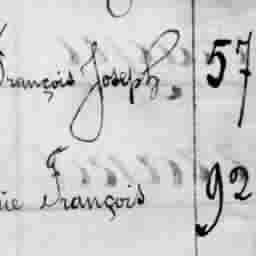 François Joseph, 57
ie François 92